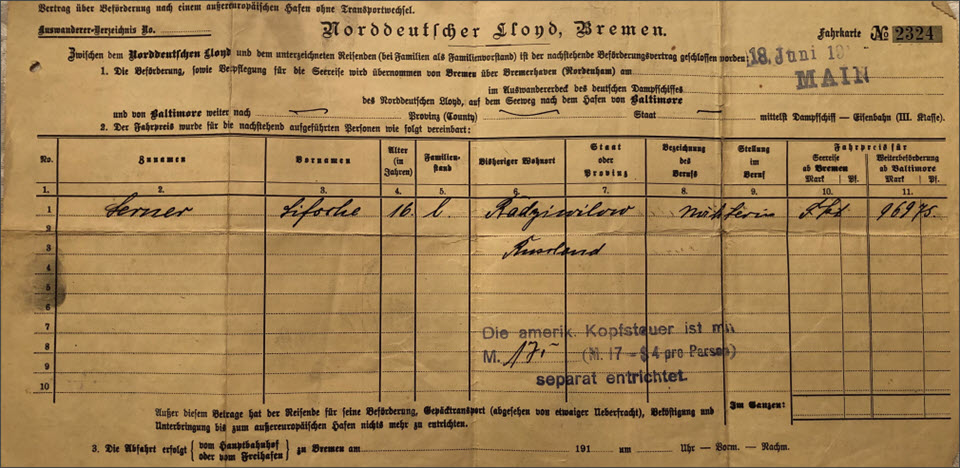 Vertrag über Beförderung nach einem außereuropäischen Hafen ohne Transportwechsel.
Auswanderer-Verzeichnis No.
Norddeutscher Lloyd, Bremen.
Fahrkarte № 2324
Zwischen dem Norddeutschen Lloyd und dem unterzeichneten Reisenden (bei Familien als Familienvorstand) ist der nachstehende Beförderungsvertrag geschlossen worden:
18. Juni 19
MAIN
1. Die Beförderung, sowie Verpflegung für die Seereise wird übernommen von Bremen über Bremerhaven (Nordenham) am
im Auswandererdeck des deutschen Dampfschiffes
des Norddeutschen Lloyd, auf dem Seeweg nach dem Hafen von Baltimore
und von Baltimore weiter nach Provinz (County) Staat mittelst Dampfschiff — Eisenbahn (III. Klasse).
2. Der Fahrpreis wurde für die nachstehend aufgeführten Personen wie folgt vereinbart:
No. Zunamen Vornamen Alter (in Jahren) Familienstand Bisheriger Wohnort Staat oder Provinz Bezeichnung des Berufs Stellung im Beruf Fahrpreis für
Seereise ab Bremen Weiterbeförderung ab Baltimore
Mark Pf. Mark Pf.
1. 2. 3. 4. 5. 6. 7. 8. 9. 10. 11.
1 Lerner 16 l. Radziwilow 969 75
2
3 Russland
4
5
6
7
Die amerik. Kopfsteuer ist mit
8
M. 17.- (M. 17 = $4 pro Person)
9
separat entrichtet.
10
Im Ganzen:
Außer diesem Betrage hat der Reisende für seine Beförderung, Gepäcktransport (abgesehen von etwaiger Ueberfracht), Beköstigung und
Unterbringung bis zum außereuropäischen Hafen nichts mehr zu entrichten.
3. Die Abfahrt erfolgt { vom Hauptbahnhof oder vom Freihafen } zu Bremen am 191 um Uhr — Vorm. — Nachm.